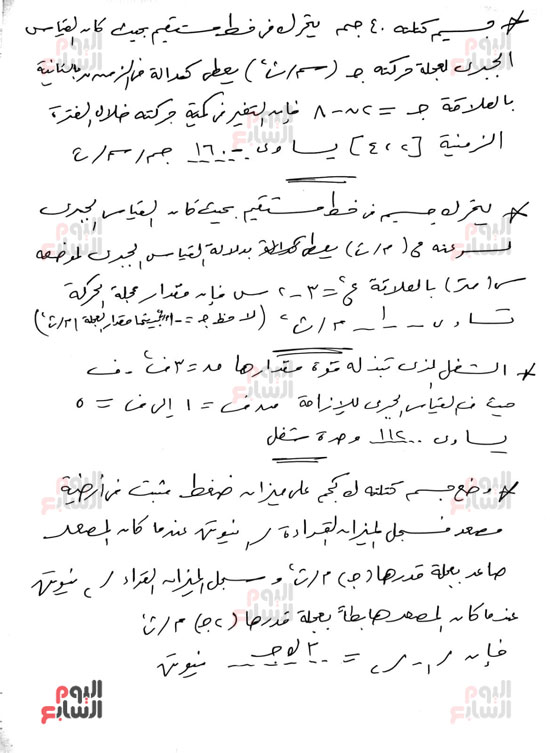 * جسيم كتلته ٤٠ جم يتحرك فى خط مستقيم بحيث كان القياس
الجبرى لعجلة حركته جـ (سم/ث٢) يعطى كدالة فى الزمن ن بالثانية
بالعلاقة جـ = ٢ن - ٨ فإن التغير فى كمية حركته خلال الفترة
الزمنية [٢، ٤] يساوى ١٦٠- جم/سم/ث
* يتحرك جسيم فى خط مستقيم بحيث كان القياس الجبرى
لسرعته ع (م/ث) يعطى بدلالة القياس الجبرى لموضعه
س (متر) بالعلاقة ع٢ = ٣ - ٢ س فإن مقدار عجلة الحركة
تساوى ١ م/ث٢ (لاحظ جـ = -١ بينما مقدار العجلة ١ م/ث٢)
* الشغل الذى تبذله قوة مقدارها ق = ٣ ف٢ - ف
حيث ف القياس الجبرى للإزاحة من ف = ١ إلى ف = ٥
يساوى ١١٢ وحدة شغل
* وضع جسم كتلته ك كجم على ميزان ضغط مثبت فى أرضية
مصعد فسجل الميزان القراءة ر١ نيوتن عندما كان المصعد
صاعد بعجلة قدرها (جـ) م/ث٢ و سجل الميزان القراءة ر٢ نيوتن
عندما كان المصعد هابطاً بعجلة قدرها (٢جـ) م/ث٢
فإن ر١ - ر٢ = ٣ ك جـ نيوتن
اليوم السابع